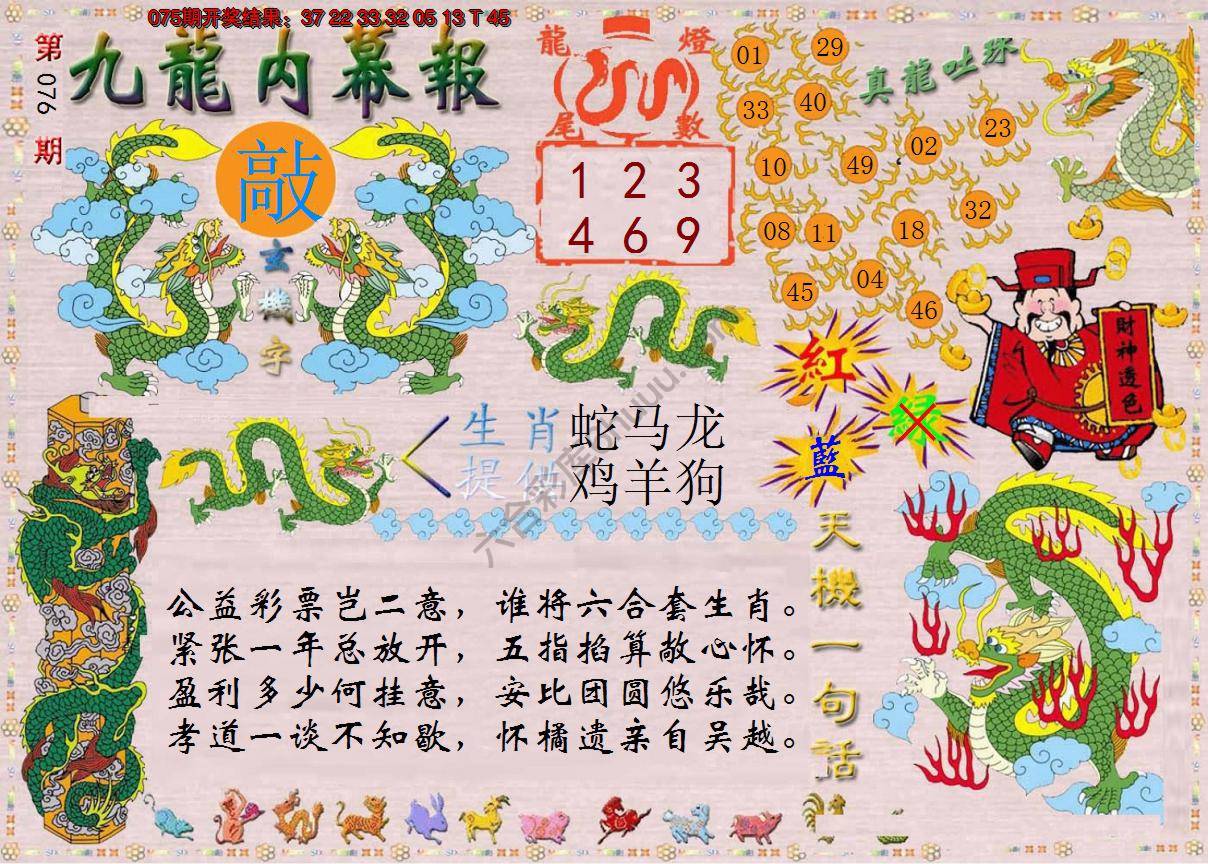 075期开奖结果：37 22 33 32 05 13 T 45
第076期
九龍内幕報
敲
玄機字
龍燈
尾數
1 2 3
4 6 9
真龍吐珠
01 29
33 40
10 49 02 23
08 11 18 32
45 04 46
財神透色
紅
绿
藍
生肖 蛇马龙
提供 鸡羊狗
天機一句話
公益彩票岂二意，谁将六合套生肖。
紧张一年总放开，五指掐算敞心怀。
盈利多少何挂意，安比团圆悠乐哉。
孝道一谈不知歇，怀橘遗亲自吴越。